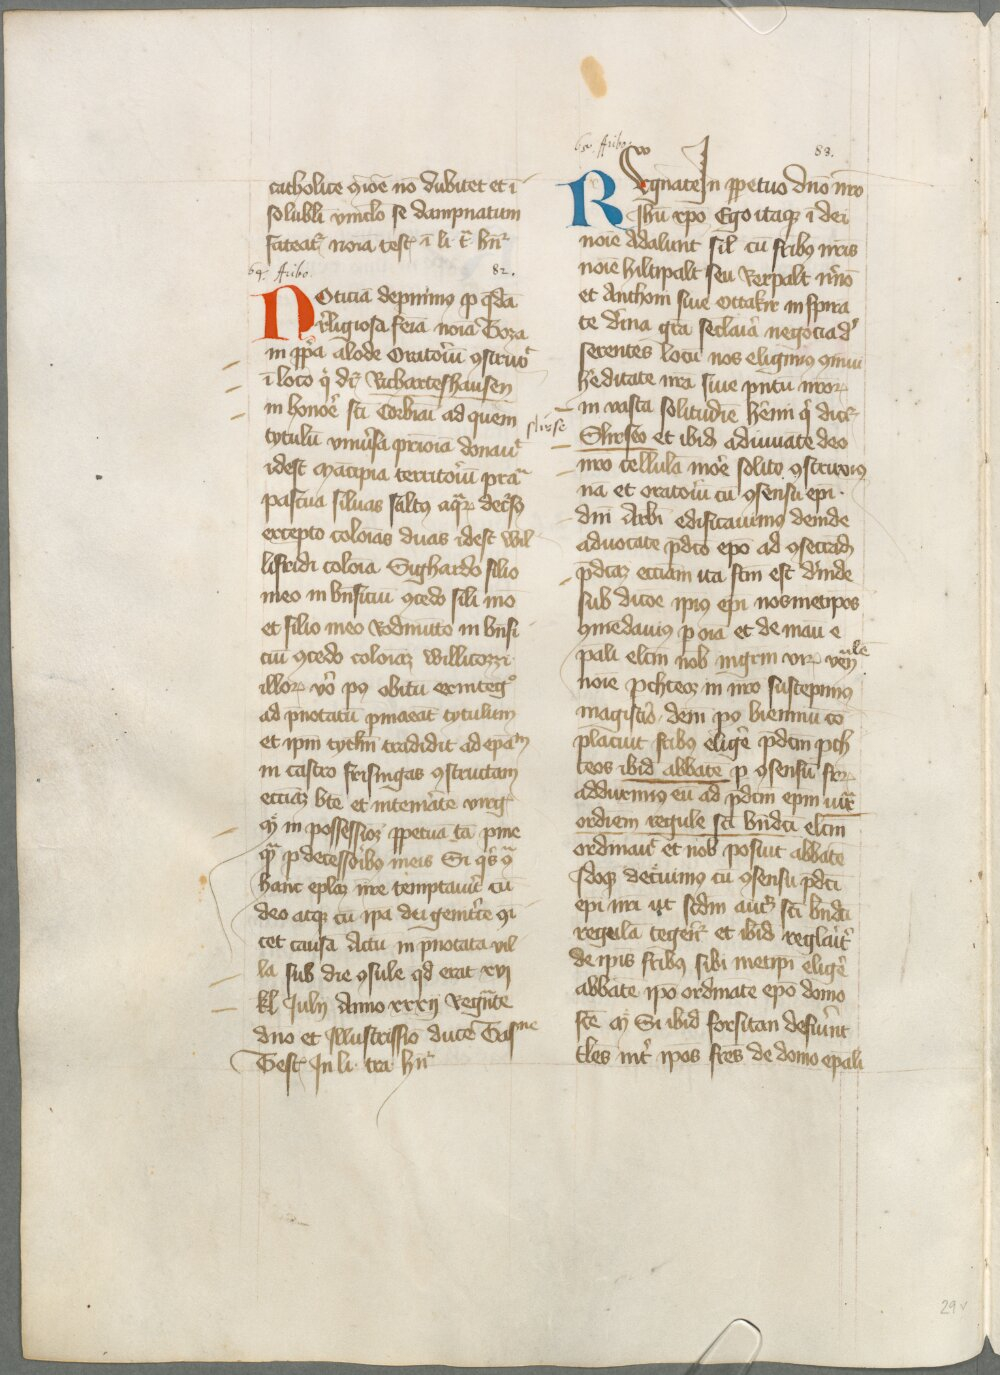 catholice ꝯiōe nō dubitet et ī
solubli vinclo se dampnatum
fateat᷑ noīa test᷑ ī li t᷑ hn᷑
64. Aribo. 82.
Noticiā depīnimꝰ ꝑ qdā
religiosa feīa noīa Toza
in ꝓpͥa alode Oratoͥiū ꝯstruct᷑
ī loco qͥ dr̄ Richarteshausen
in honoꝛe sc̄i Corbiāi ad quem
tytulū vniūsa pͥmoīa donauͭ
idest mācipia territoͥiū prata
pascua siluas saltꝰ aqͣꝝ decꝰsꝰ
excepto colōias duas idest wil
lifridi colōia Sighardo filio
meo in bn̄ficiū ꝯcedo sili mō
et filio meo Rodmūto in bn̄fi
ciū ꝯcedo colōiaꝫ willicozzi
illoꝝ vͦo pꝰ obitū exintegͦ
ad p̄notatū ꝑmaēat tytulum
et ipm̄ tytlm̄ tradidit ad epāᵐ
in castro frisingas ꝯstructam
eccīaꝫ bt̄e et intemͣate virgͥ
mͥ in possessiōeꝫ ꝑpetuā tā pͥme
qͣ ꝓdecessoͥibꝰ meis Si qͥs qͣ
hanc eplaꝫ irͥe temptauͥt cū
deo atqꝫ cū ipa dei genitͥce ꝯi
cet causa Actū in p̄notata vil
la sub die ꝯsule qd̄ erat xvi
kl Julii Anno xxxii Regnͣte
dn̄o et Illustrissīo duce Tasⁿᵉ
Test᷑ In li tra hn᷑
65. Aribo. 83.
Regnāte In ꝑpetuo dn̄o nr̄o
Jhū xp̄o Ego itaqꝫ ī dei
noīe Adalunt sil̄ cū fr̄ibꝰ nr̄is
noīe hiltipalt seu Kerpalt nͥo
et Anthoni siue Ottakir inspira
te dīuina grā seclaͥia negocia dͥ
serentes locū nos eligimꝰ ꝯmui
h̄editate nr̄a siue pn̄tū nr̄oꝝ
in vasta solitudīe h̄emi qͥ dicͥt᷑
slirsse
Slirseo et ibid᷑ adiuuāte deo
nr̄o cellulā moꝛe solito ꝯstruxiꝰ
nā et oratoͥiū cū ꝯsensu epī
dn̄i Arbī edificauimꝰ deinde
aduocate p̄dc̄o epō ad ꝯsecrād᷑
p̄dc̄aꝫ eccīam ita fcm̄ est dͥinde
sub dicōe ipīꝰ epī nosmetipōs
ꝯmēdauiꝰ ꝑ oīa et de manu e
pali elcm̄ nob̄ mgrm̄ virꝝ venͣͣile
noīe ꝑchteoꝫ in nr̄o suscepimꝰ
magistͥo dem̄ pꝰ bienniū cō
placuit fr̄ibꝰ eligͥe p̄dcm̄ ꝑch
teos ibid᷑ abbate ꝑ ꝯsensū frͥꝝ
adduximꝰ eū ad p̄dcm̄ epm̄ iuxͭ
ordīem regule sc̄i bn̄dc̄i elcm̄
ordinauͥt et nob̄ posuit abbatē
sdoqꝫ decͥuimꝰ cū ꝯsensu p̄dc̄i
epī nr̄i ut scdm̄ auctͤ sc̄i bn̄dc̄i
regulā tegerͥt et ibid᷑ reglaͥitͥ
de ipīs fr̄ibꝰ sibi metipī eligͥe
abbatē ipō ordinate epō domo
sc̄e mͥ Si ibid᷑ forsitan defuͥint
tles intͥ ipōs fr̄es de domo epali
29v